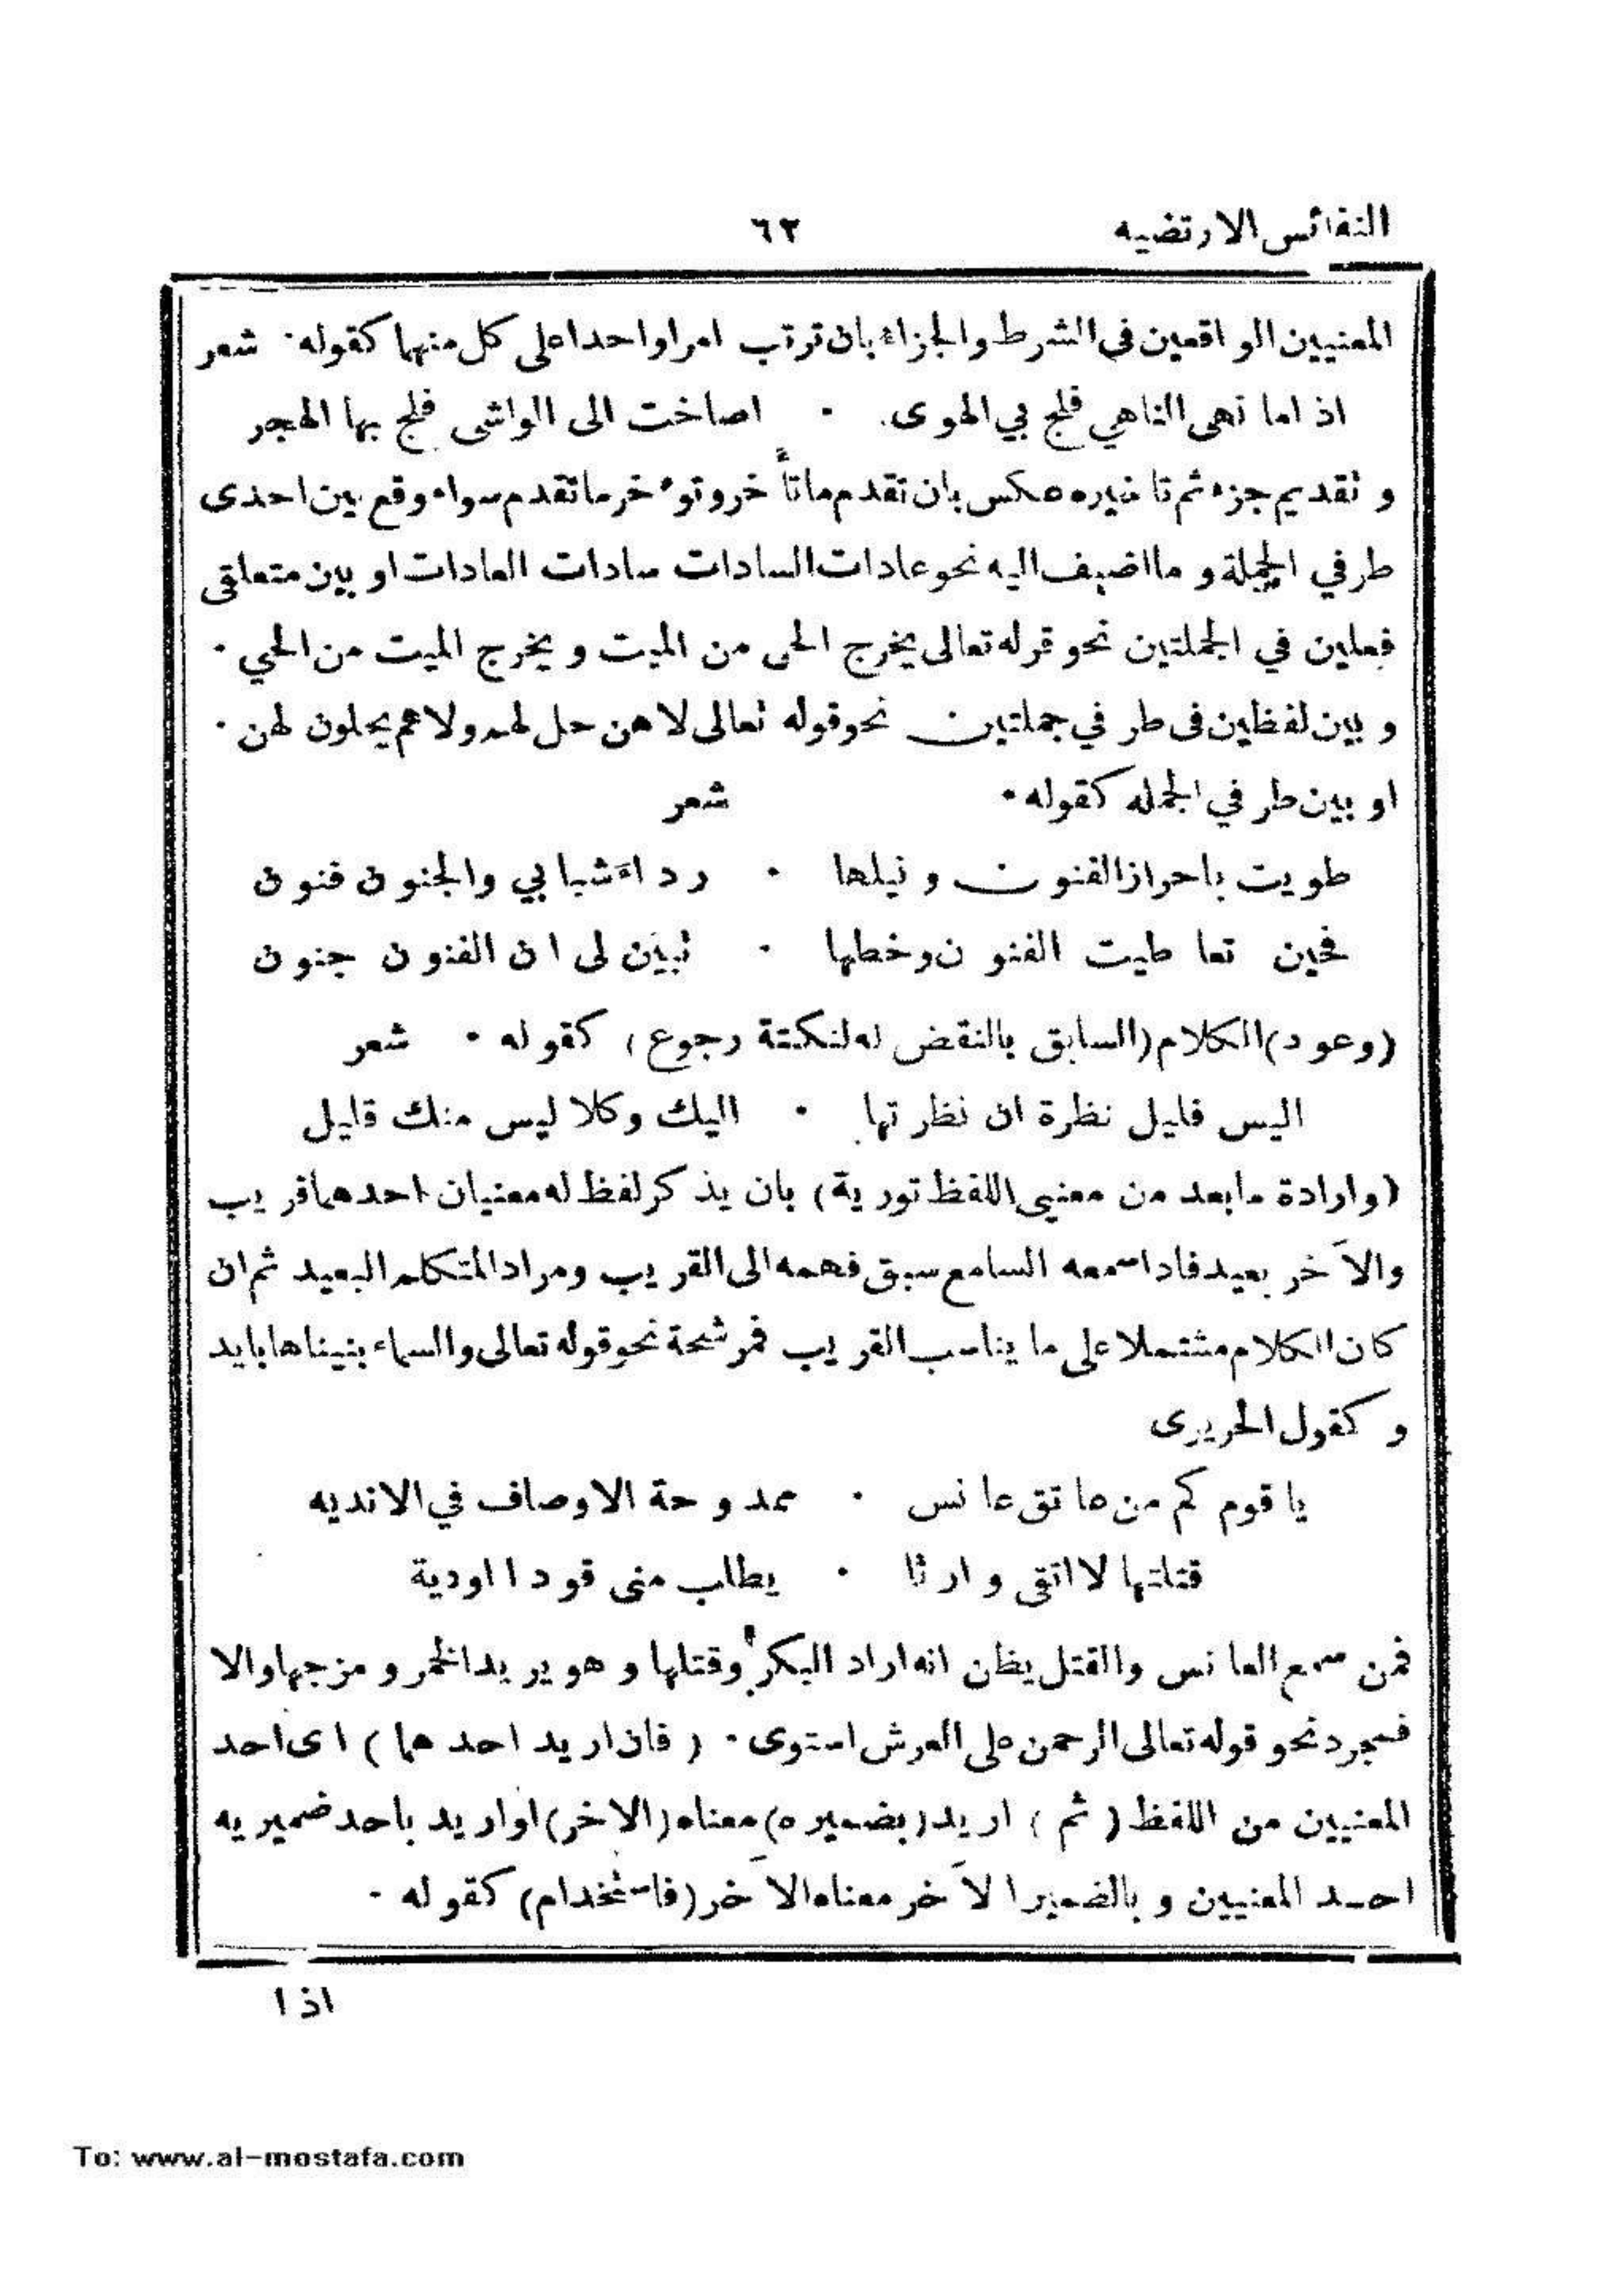 النفائس الارتضيه
٦٢
المعنيين الواقعين فى الشرط والجزاء بان ترتب امرا واحدا على كل منهما كقوله ۰ شعر
اذا ما نهى الناهي فلج بي الهوى ۰ اصاخت الى الواشى فلج بها الهجر
و تقديم جزء ثم تاخيره عكس بان تقدم ما تأخر وتوءخر ما تقدم سواء وقع بين احدى
طرفي الجملة و ما اضيف اليه نحو عادات السادات سادات العادات او بين متعلقى
فعلين في الجملتين نحو قوله تعالى يخرج الحى من الميت و يخرج الميت من الحي ۰
و بين لفظين فى طرفي جملتين نحو قوله تعالى لا هن حل لهم ولا هم يحلون لهن ۰
او بين طرفي الجمله كقوله ۰ شعر
طويت باحراز الفنون و نيلها ۰ رداء شبابي والجنون فنون
فحين تعاطيت الفنون وخطها ۰ تبين لى ان الفنون جنون
(وعود) الكلام (السابق بالنقض له لنكتة رجوع) كقوله ۰ شعر
اليس قليل نظرة ان نظرتها ۰ اليك وكلا ليس منك قليل
(وارادة مابعد من معنيي اللفظ تورية) بان يذكر لفظ له معنيان احدهما قريب
والآخر بعيد فاذا سمعه السامع سبق فهمه الى القريب ومراد المتكلم البعيد ثم ان
كان الكلام مشتملا على ما يناسب القريب فمرشحة نحو قوله تعالى والسماء بنيناها بايد
و كقول الحريرى
يا قوم كم من عاتق عانس ۰ ممدوحة الاوصاف في الانديه
قتلتها لا اتقى وارثا ۰ يطلب منى قودا اودية
فمن سمع العانس والقتل يظن انه اراد البكر وقتلها و هو يريد الخمر و مزجها والا
فمجرد نحو قوله تعالى الرحمن على العرش استوى ۰ (فان اريد احدهما) اى احد
المعنيين من اللفظ (ثم) اريد (بضميره) معناه (الاخر) اواريد باحد ضميريه
احد المعنيين و بالضمير الآخر معناه الآخر (فاستخدام) كقوله ۰
اذا
To: www.al-mostafa.com